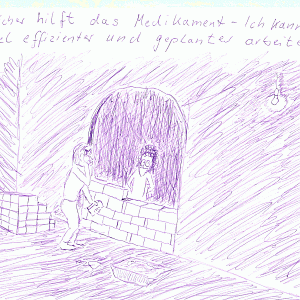 icher hilft das Medikament – Ich kann
el effizienter und geplanter arbeite